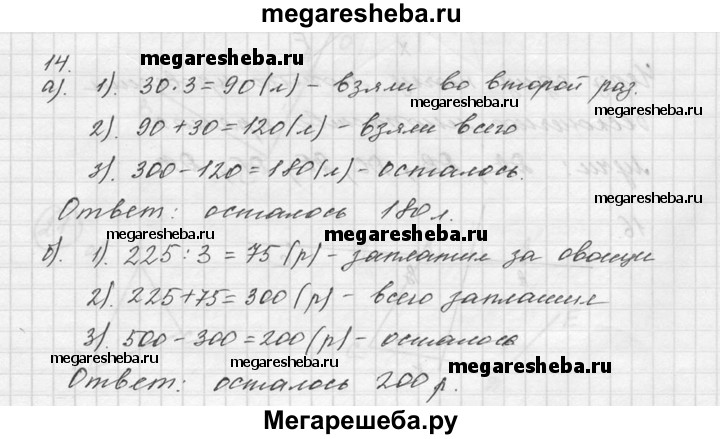 megaresheba.ru
14.
megaresheba.ru
а). 1). 30·3=90(л) – взяли во второй раз.
megaresheba.ru
2). 90+30=120(л) – взяли всего
megaresheba.ru
3). 300-120=180(л) – осталось.
megaresheba.ru
Ответ: осталось 180л.
б). 1). 225:3=75(р) – заплатил за овощи
2). 225+75=300(р) – всего заплатил
3). 500-300=200(р) – осталось
megaresheba.ru
megaresheba.ru
megaresheba.ru
Ответ: осталось 200р.
Мегарешеба.ру